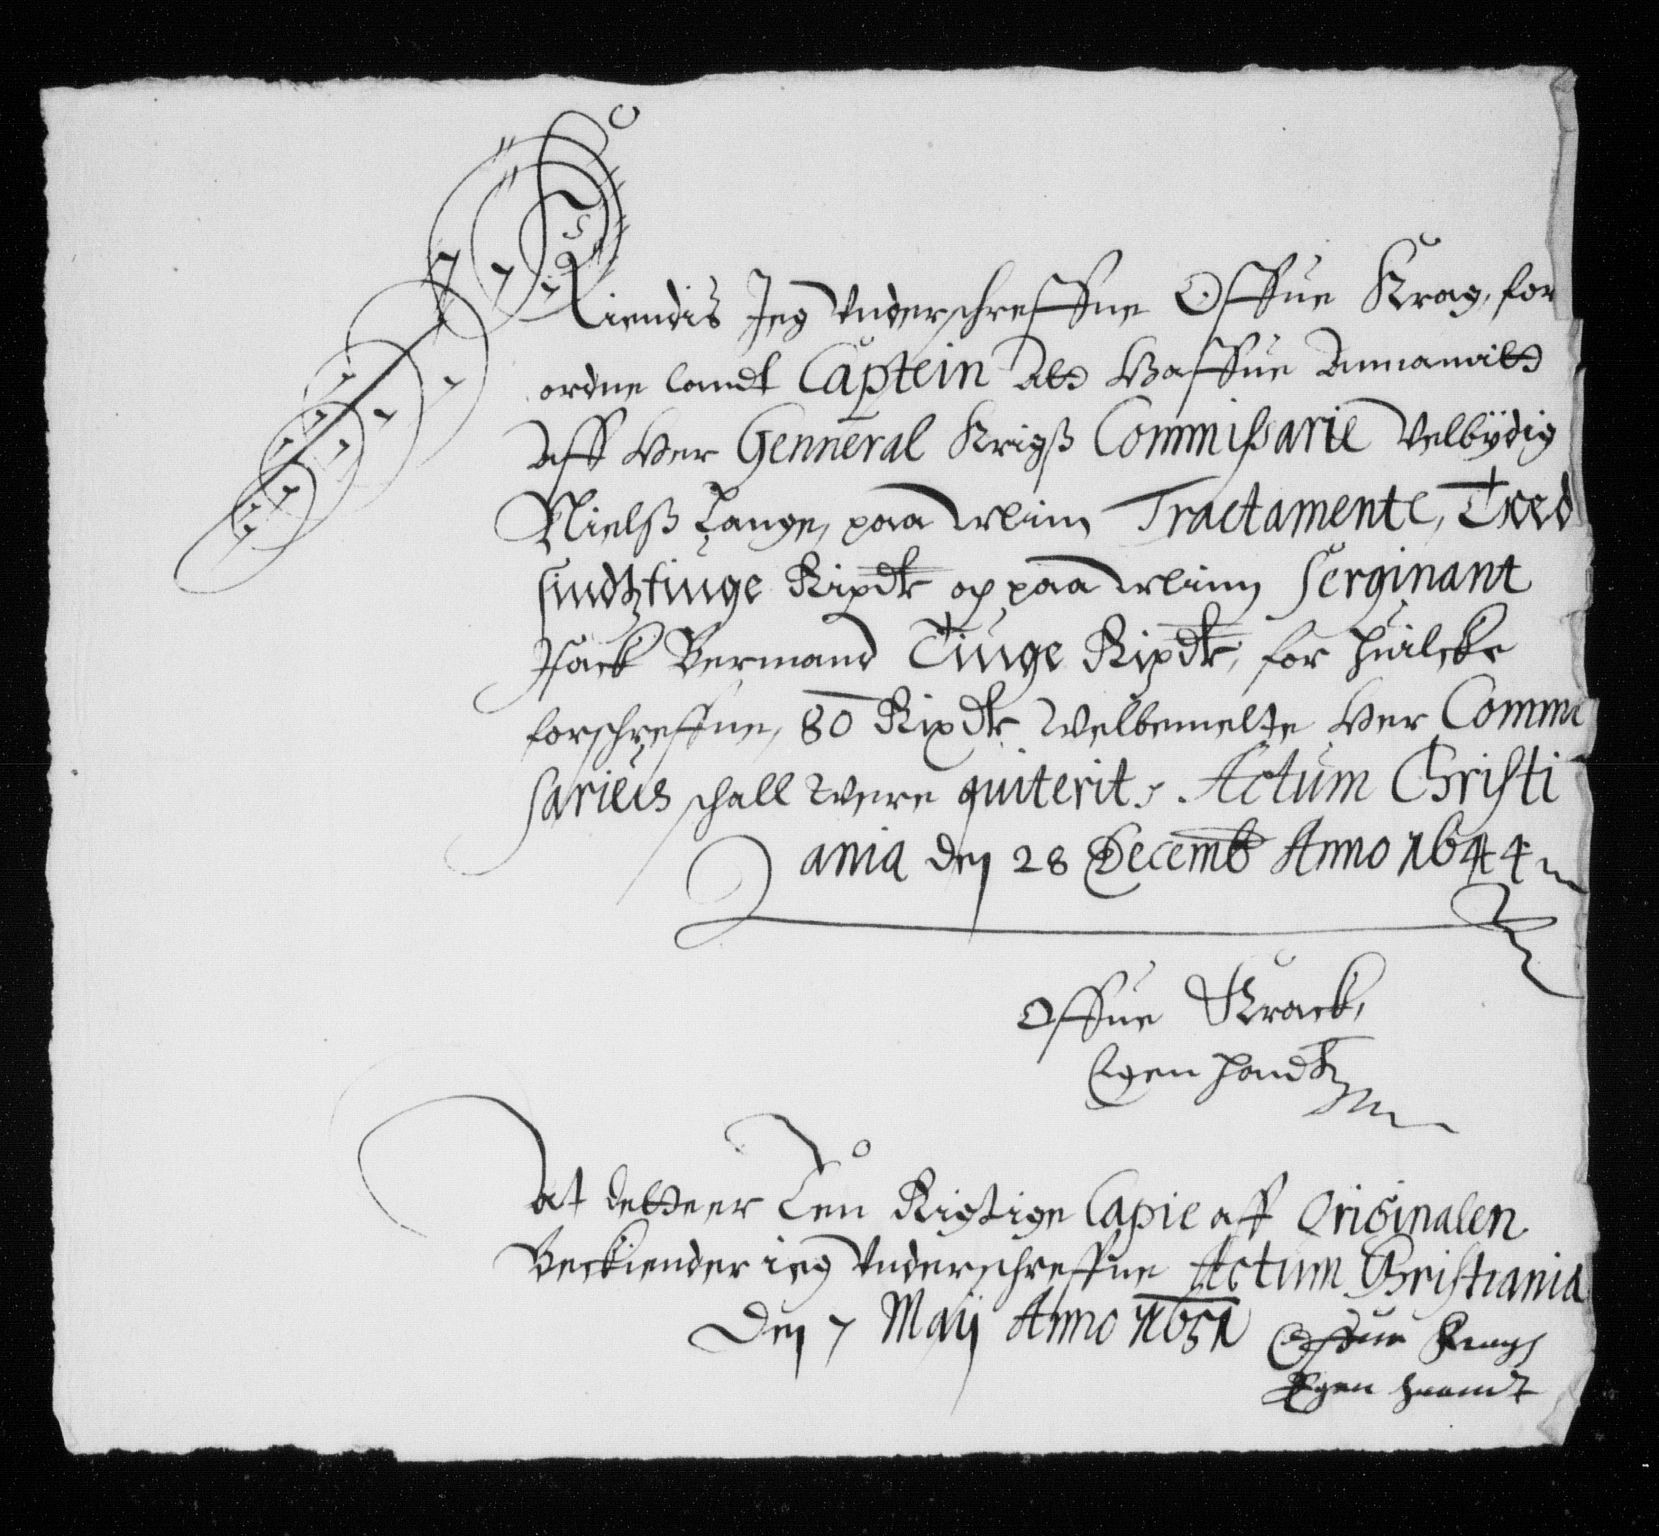 Kiendis Jeg Underschreffne Offue Krag, for
ordne landt Captein Att Haffue Annamitt
Aff Her Genneral Krigß Commißarie Velbÿdig
Nielß Lange, paa Tractamente, Tred
sindtztiuge Rixdlr og paa Serginant
Isack Bermand Tiuge Rixdlr, for huilcke
forschreffne, 80 Rixdlr Welbemelte Her Commi
sarieus schall Were quiterit, Actum Christi
ania den 28 Decemb Anno 1644
Offue Krack,
Egen handt
At detteer Een Rigtige Capie aff Originalen
Beckiender ieg Underschreffne Actum Christiania
Den 7 Maÿ Anno 1651 Offue Kragh
Egen haandt